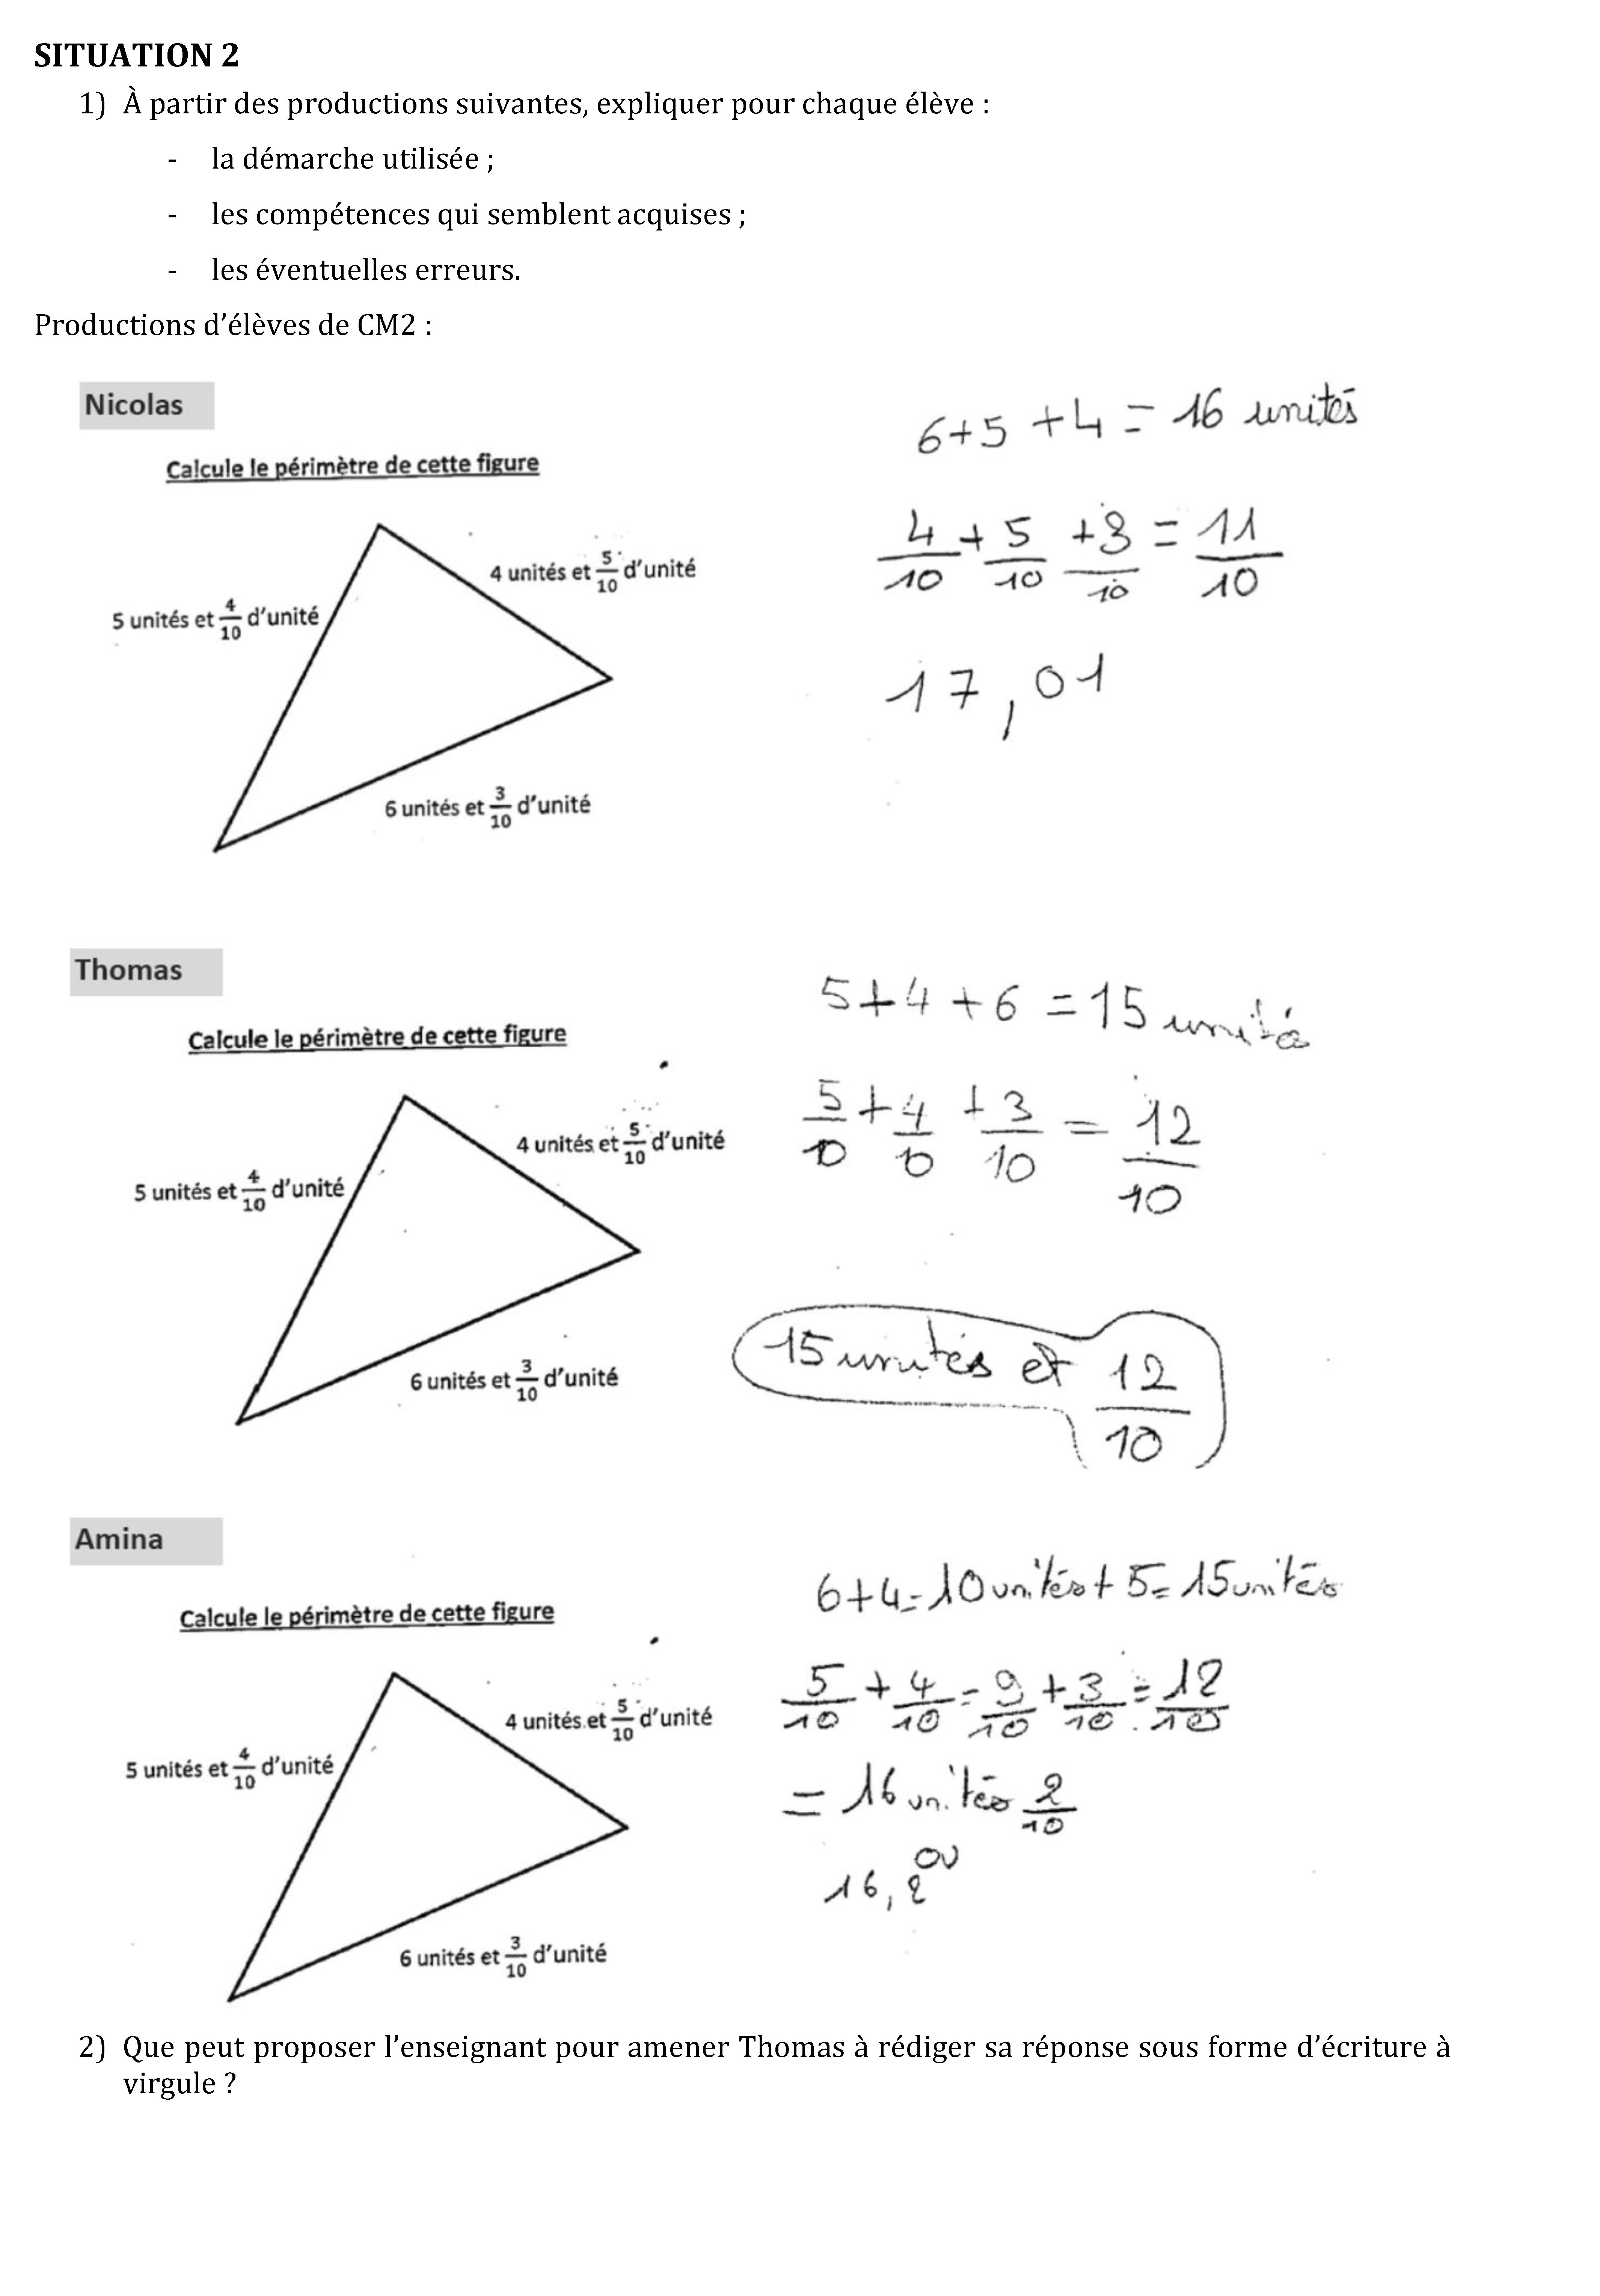 SITUATION 2
1) À partir des productions suivantes, expliquer pour chaque élève :
- la démarche utilisée ;
- les compétences qui semblent acquises ;
- les éventuelles erreurs.
Productions d'élèves de CM2 :
Nicolas
Calcule le périmètre de cette figure
4 unités et 5/10 d'unité
5 unités et 4/10 d'unité
6 unités et 3/10 d'unité
6+5+4 = 16 unités
4/10 + 5/10 + 3/10 = 11/10
17,01
Thomas
Calcule le périmètre de cette figure
4 unités et 5/10 d'unité
5 unités et 4/10 d'unité
6 unités et 3/10 d'unité
5+4+6 = 15 unité
5/10 + 4/10 + 3/10 = 12/10
15 unités et 12/10
Amina
Calcule le périmètre de cette figure
4 unités et 5/10 d'unité
5 unités et 4/10 d'unité
6 unités et 3/10 d'unité
6+4=10 unités+5=15 unités
5/10 + 4/10 = 9/10 + 3/10 = 12/10
= 16 unités 2/10
ou
16,2
2) Que peut proposer l'enseignant pour amener Thomas à rédiger sa réponse sous forme d'écriture à
virgule ?